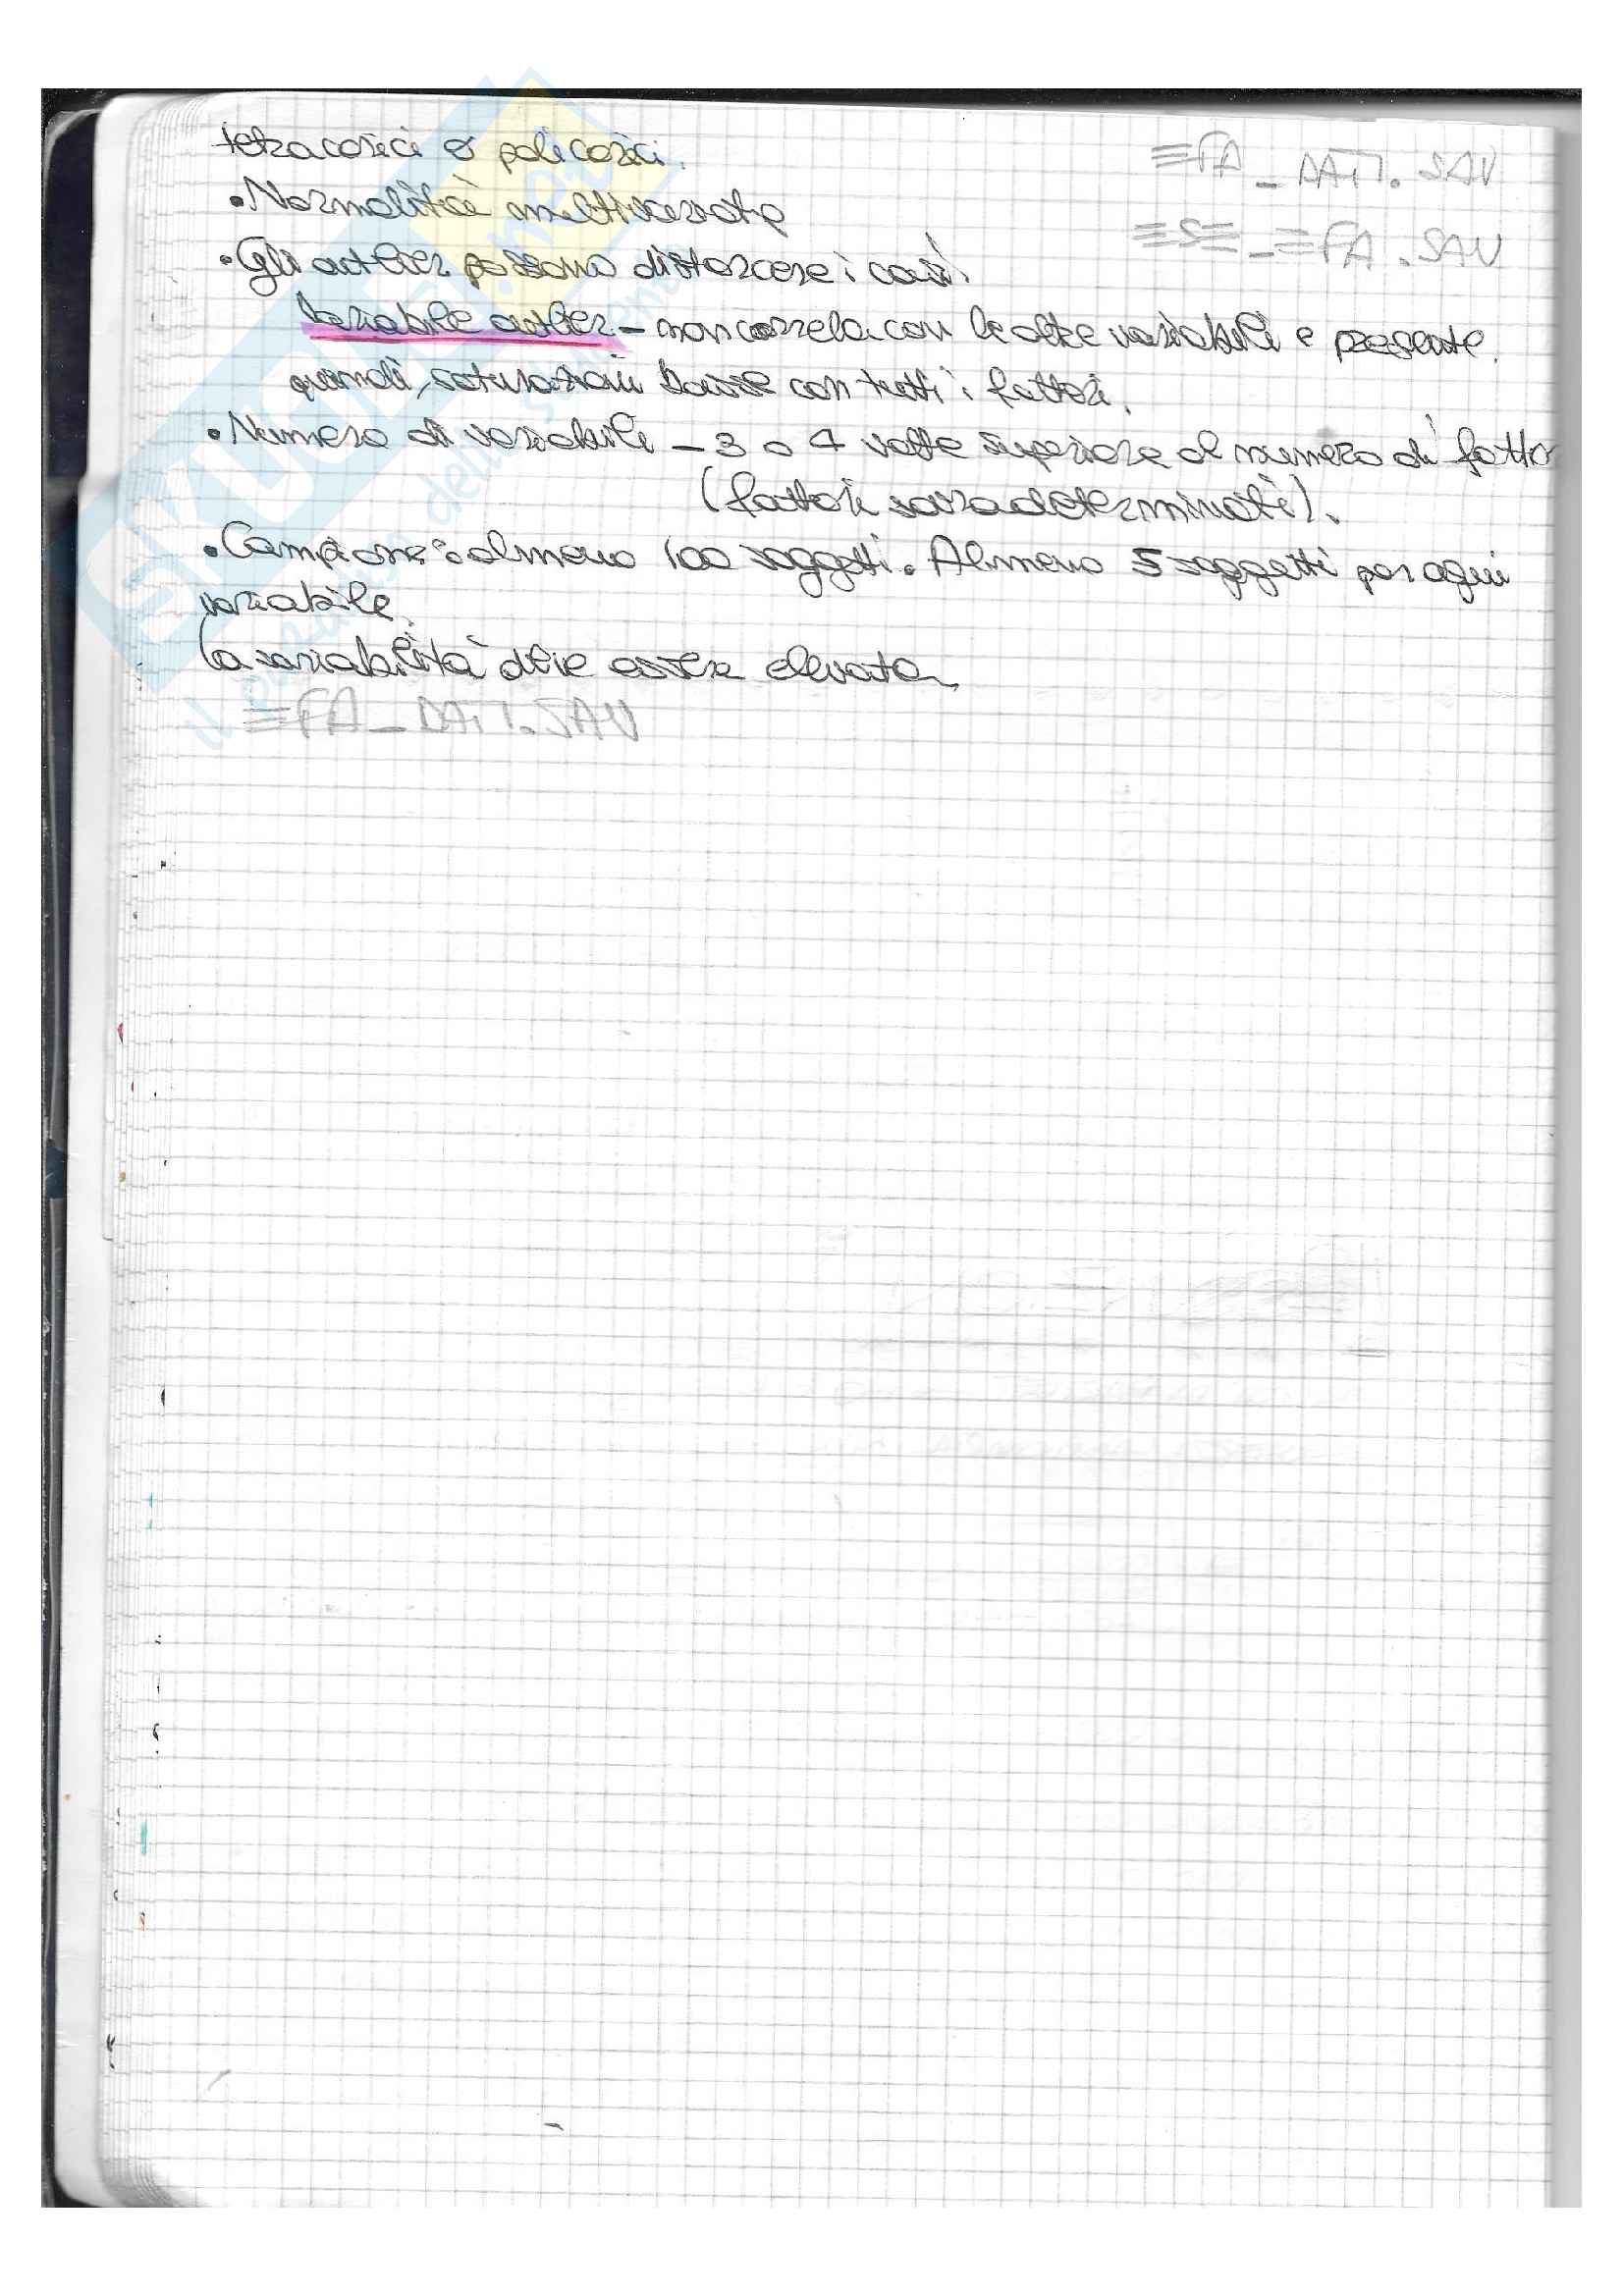 tetracorici o policorici.
EFA_DATI.SAV
• Normalità multivariata
ESE_EFA.SAV
• Gli outlier possono distorcere i casi.
Variabile outlier - non correla con le altre variabili e presente,
quindi, saturazioni basse con tutti i fattori.
• Numero di variabili - 3 o 4 volte superiore al numero di fattor
(fattori sovradeterminati).
• Campione: almeno 100 soggetti. Almeno 5 soggetti per ogni
variabile.
La variabilità deve essere elevata
EFA_DATI.SAV